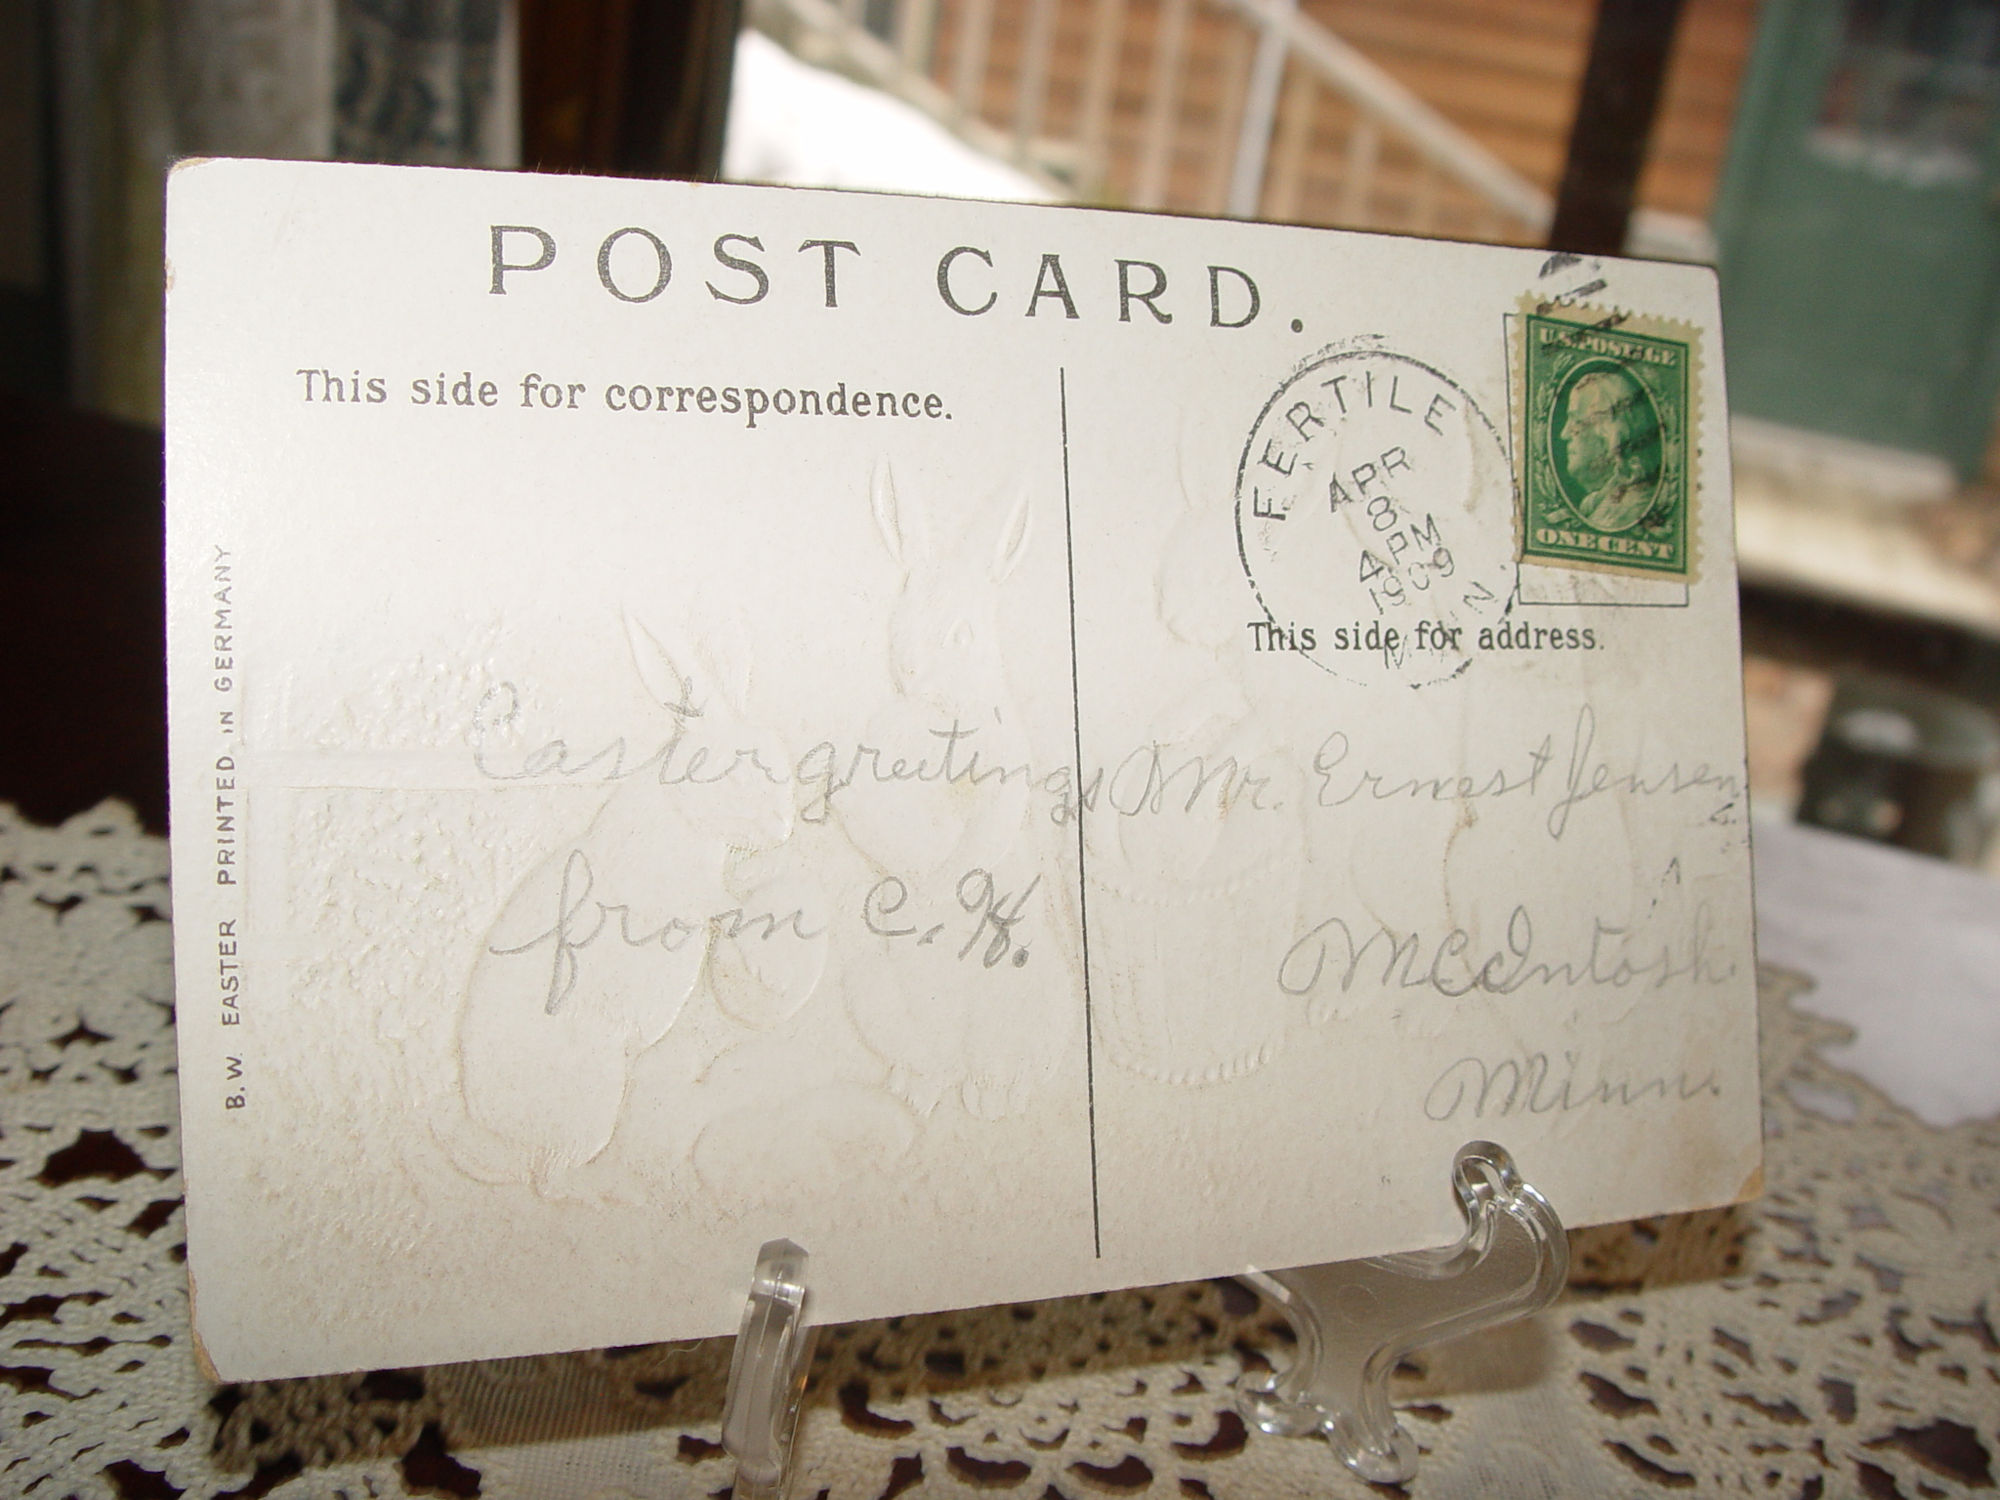 POST CARD.
This side for correspondence.
U.S. POSTAGE
ONE CENT
FERTILE
APR
8
4 PM
1909
MINN.
This side for address.
Easter greetings
from C. H.
Mr. Ernest Jensen
McIntosh
Minn.
B.W. EASTER PRINTED IN GERMANY